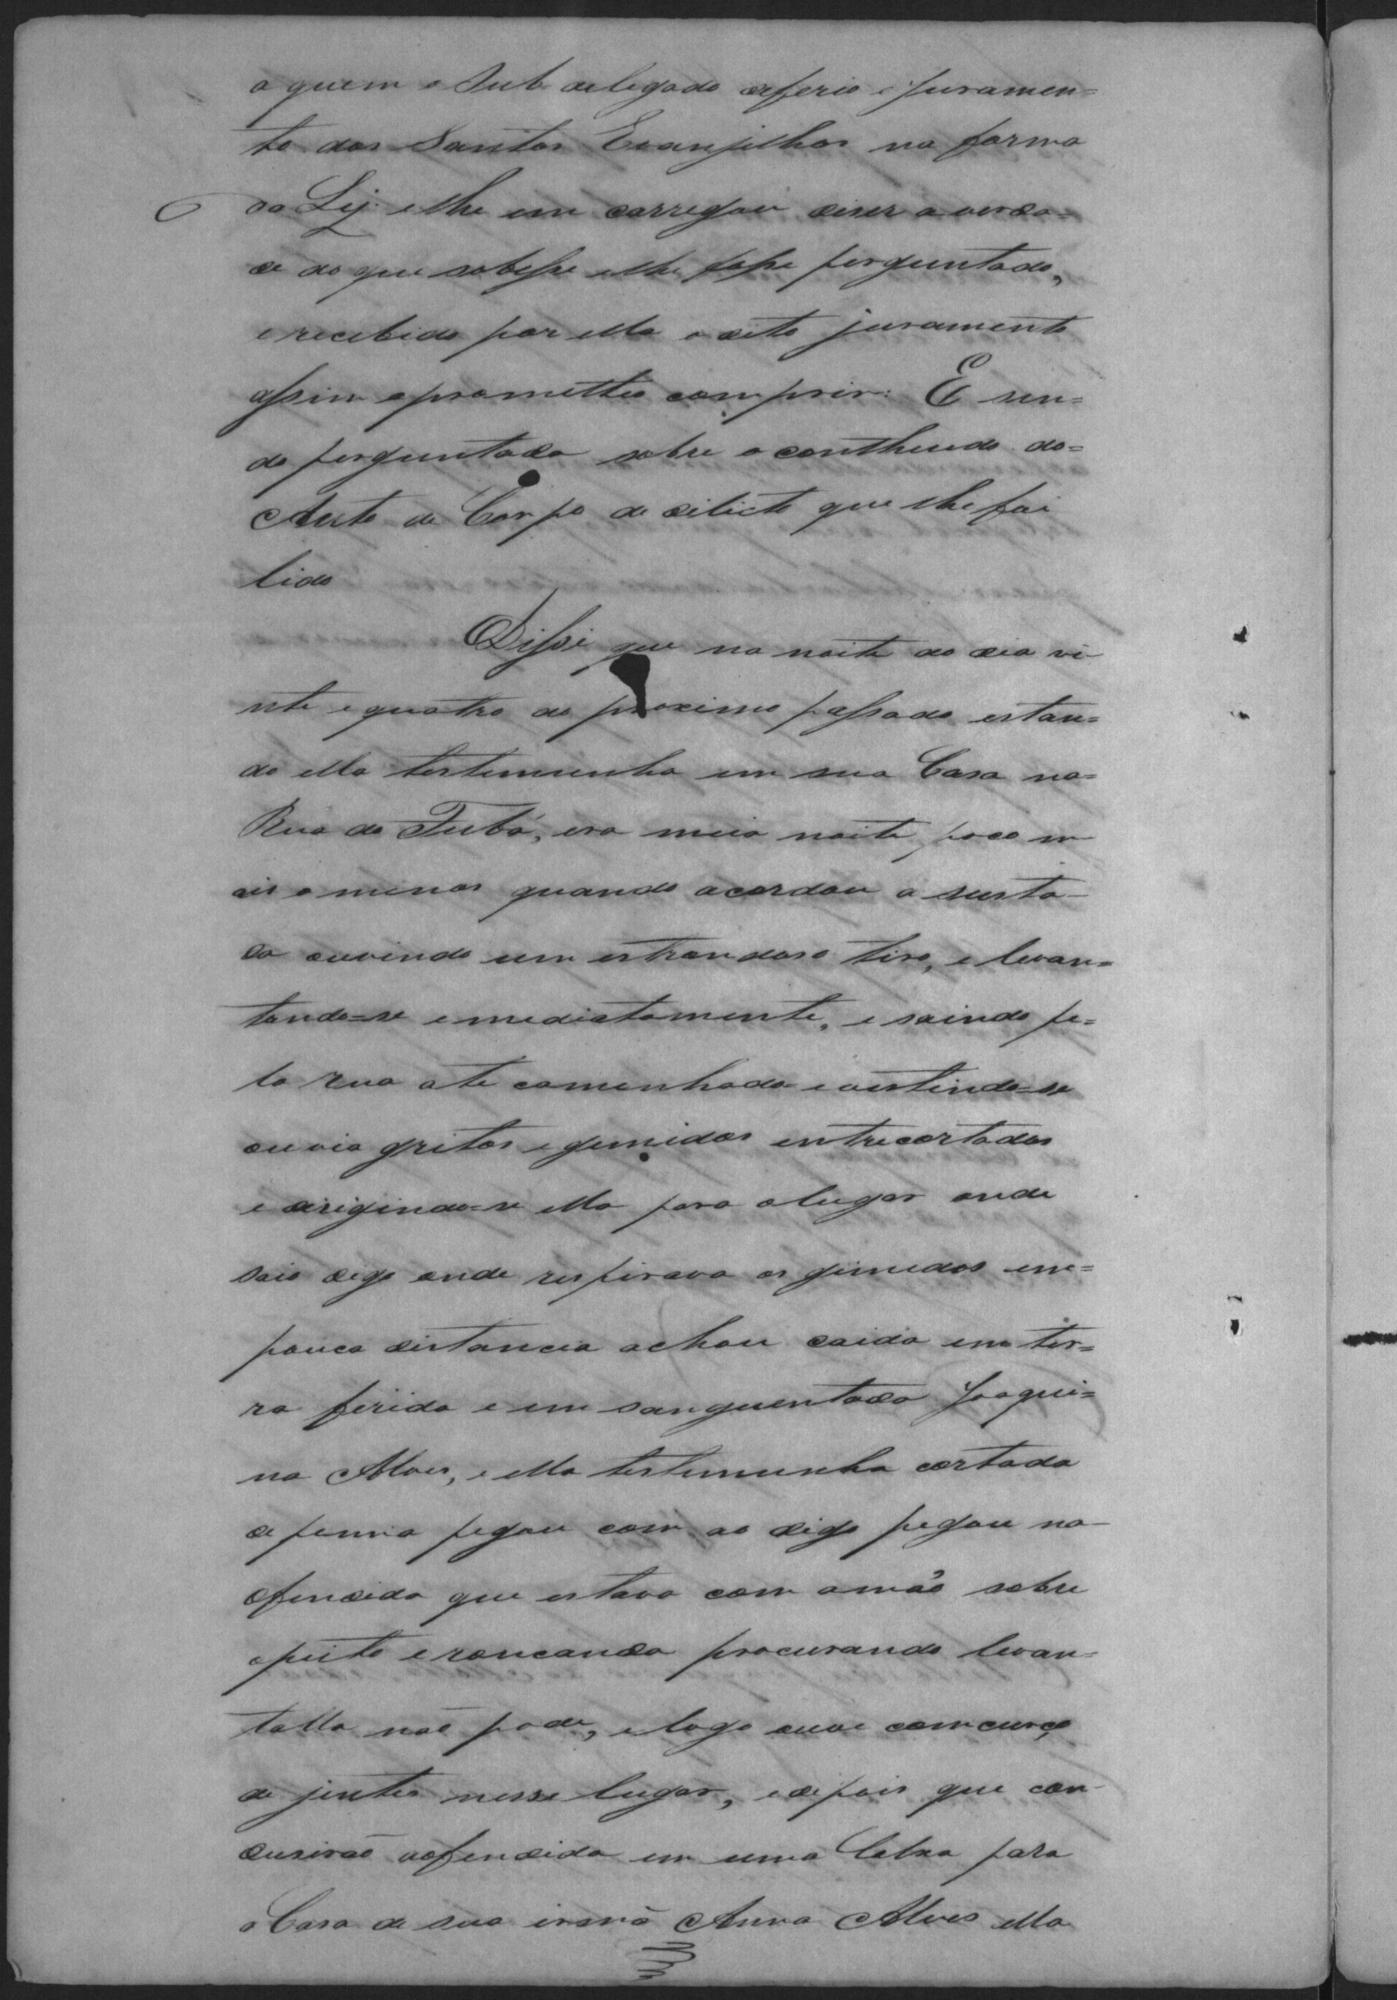 a quem o Sub delegado deferio o juramen=
to dos Santos Evanjelhos na forma
da Ley e lhe em carregou diser a verda=
de do que sobesse e lhe fosse perguntado,
e recebido por ella o dito juramento
assim o prometteo comprir: E sen=
do perguntada sobre o contheudo do=
Auto de Corpo de delicto que lhe foi
lido
Disse que na noite do dia vi-
nte e quatro do proximo passado estan=
do ella testemunha em sua Casa na=
Rua do Tubá, era meia noite, poco m
ais o menos quando acordou a susta-
da ouvindo um estrondoso tiro, e levan=
tando=se emediatamente, e saindo pe=
la rua a te caminhada e vestindo=se
ouvio gritos e gemidos entrecortados
e dirigindo=se ella para o lugar onde
saio digo onde respirava os gimidos em=
pouca distancia achou caida em ter=
ra ferida e em sanguentada Joaqui=
na Alves, e ella testemunha cortada
de penna pegou com ao digo pegou na-
ofendida que estava com a mão sobre
o peito e roncando procurando levan=
talla não pode, e logo ouve comcurço
de jentes nesse lugar, e depois que con-
dusirão a ofendida em uma para
a Casa de sua irmã Anna Alves ella